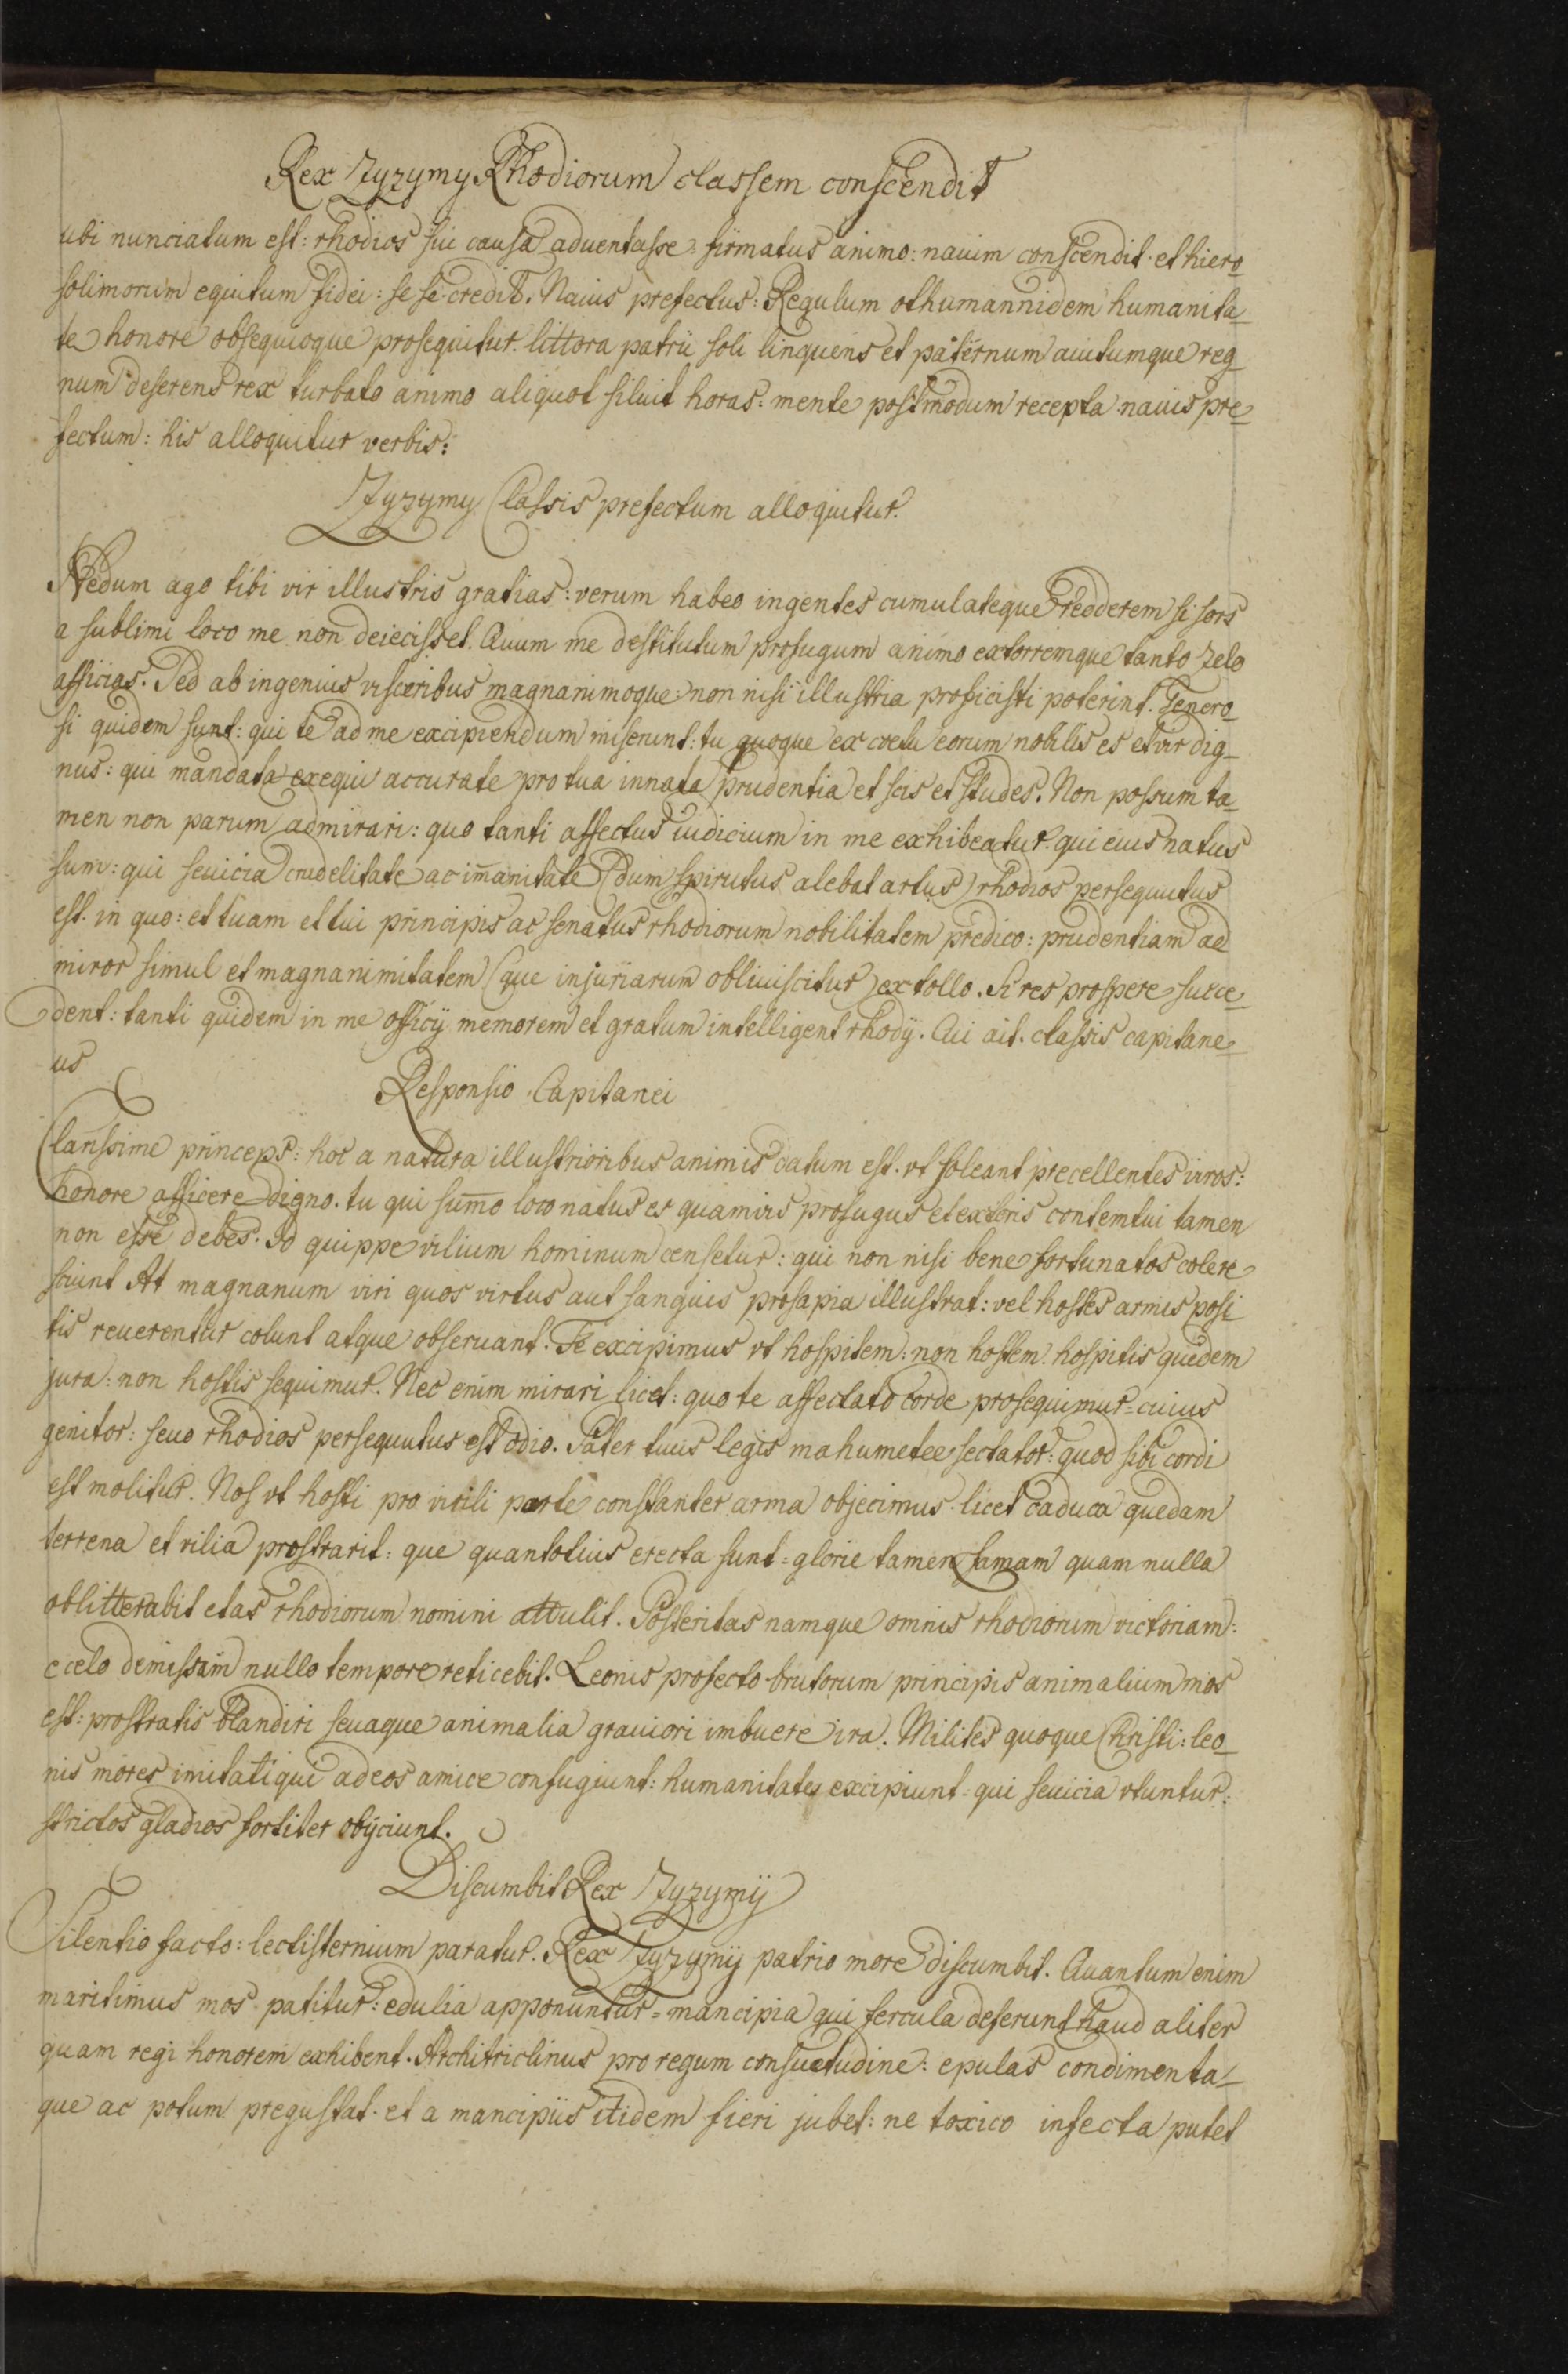 Rex Zyzymy Rhodiorum classem conscendit
ubi nunciatum est: rhodios sui causa aduentasse: firmatus animo: nauim conscendit. et hiero_
solimorum equitum fidei: se se credit. Nauis prefectus: Regulum othumannidem humanita_
te honore obsequioque prosequitur. littora patrii soli linquens et paternum auitumque reg_
num deserens rex turbato animo aliquot siluit horas. mente postmodum recepta nauis pre_
fectum: his alloquitur verbis:
Zyzymy Classis prefectum alloquitur.
Nedum ago tibi vir illustris gratias: verum habeo ingentes cumulateque redderem si sors
a sublimi loco me non deiecisset. Quum me destitutum profugum animo extorremque tanto zelo
afficias. Sed ab ingenuis visceribus magnanimoque: non nisi illustria proficisti poterint. Genero_
si quidem sunt: qui te ad me excipiendum miserunt: tu quoque ex coetu eorum nobilis es et vir dig_
nus: qui mandata exequi accurate pro tua innata prudentia et scis et studes. Non possum ta_
men non parum admirari: quo tanti affectus iudicium in me exhibeatur. qui eius natus
sum: qui seuicia crudelitate ac im̄anitate (dum spirutus alebat artus) rhodios persequutus
est. in quo: et tuam et tui principis ac senatus rhodiorum nobilitatem predico: prudentiam ad
miror simul et magnanimitatem (que injuriarum obliuiscitur) extollo. Si res prospere succe_
dent: tanti quidem in me officÿ memorem et gratum intelligent rhodÿ. Cui ait. classis capitane_
us
Responsio Capitanei
Clarissime princeps: hoc a natura illustrioribus animis datum est. vt soleant precellentes viros:
honore afficere digno. tu qui sum̄o loco natus es quamuis profugus et extoris contemtui tamen
non esse debes. Id quippe vilium hominum censetur: qui non nisi bene fortunatos colere
sciunt At magnanum viri quos virtus aut sanguis prosapia illustrat: vel hostes armis posi
tis reuerentur colunt atque obseruant. Te excipimus vt hospitem: non hostem. hospitis quedem
jura: non hostis sequimur. Nec enim mirari licet: quo te affectato corde prosequimur= cuius
genitor: seuo rhodios persequutus est odio. Pater tuus legis mahumetee sectator: quod sibi cordi
est molitur. Nos vt hosti pro virili parte constanter arma objecimus. licet caduca quedam
terrena et vilia prostrarit: que quantotius erecta sunt= glorie tamen famam quam nulla
oblitterabit etas rhodiorum nomini attulit. Posteritas namque omnis rhodiorum victoriam:
e celo demissam nullo tempore reticebit. Leonis profecto brutorum principis animalium mos
est: prostratis blandiri seuaque animalia grauiori imbuere ira. Milites quoque Christi: leo_
nis mores imitati qui ad eos amice confugiunt: humanitates excipiunt= qui seuicia vtuntur:
strictos gladios fortiter obÿciunt.
Discumbit Rex Zyzymÿ
Silentio facto: lectisternium paratur. Rex Zyzymÿ patrio more discumbit. Quantum enim
maritimus mos patitur: edulia apponuntur= mancipia qui fercula deferunt haud aliter
quam regi honorem exhibent. Architriclinus pro regum consuetudine: epulas condimenta_
que ac potum pregustat. et a mancipiis itidem fieri jubet: ne toxico infecta putet